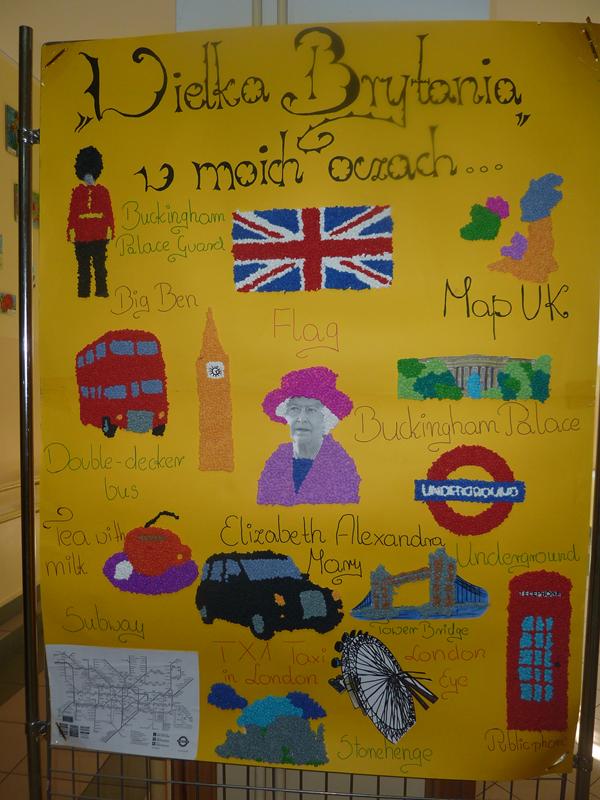 „Wielka Brytania”
w moich oczach...
Buckingham
Palace Guard
Big Ben
Flag
Map UK
Buckingham Palace
Double-decker
bus
UNDERGROUND
Tea with
milk
Elizabeth Alexandra
Mary
Underground
TELEPHONE
Tower Bridge
Subway
TX1 Taxi
in London
London
Eye
Stonehenge
Public phone